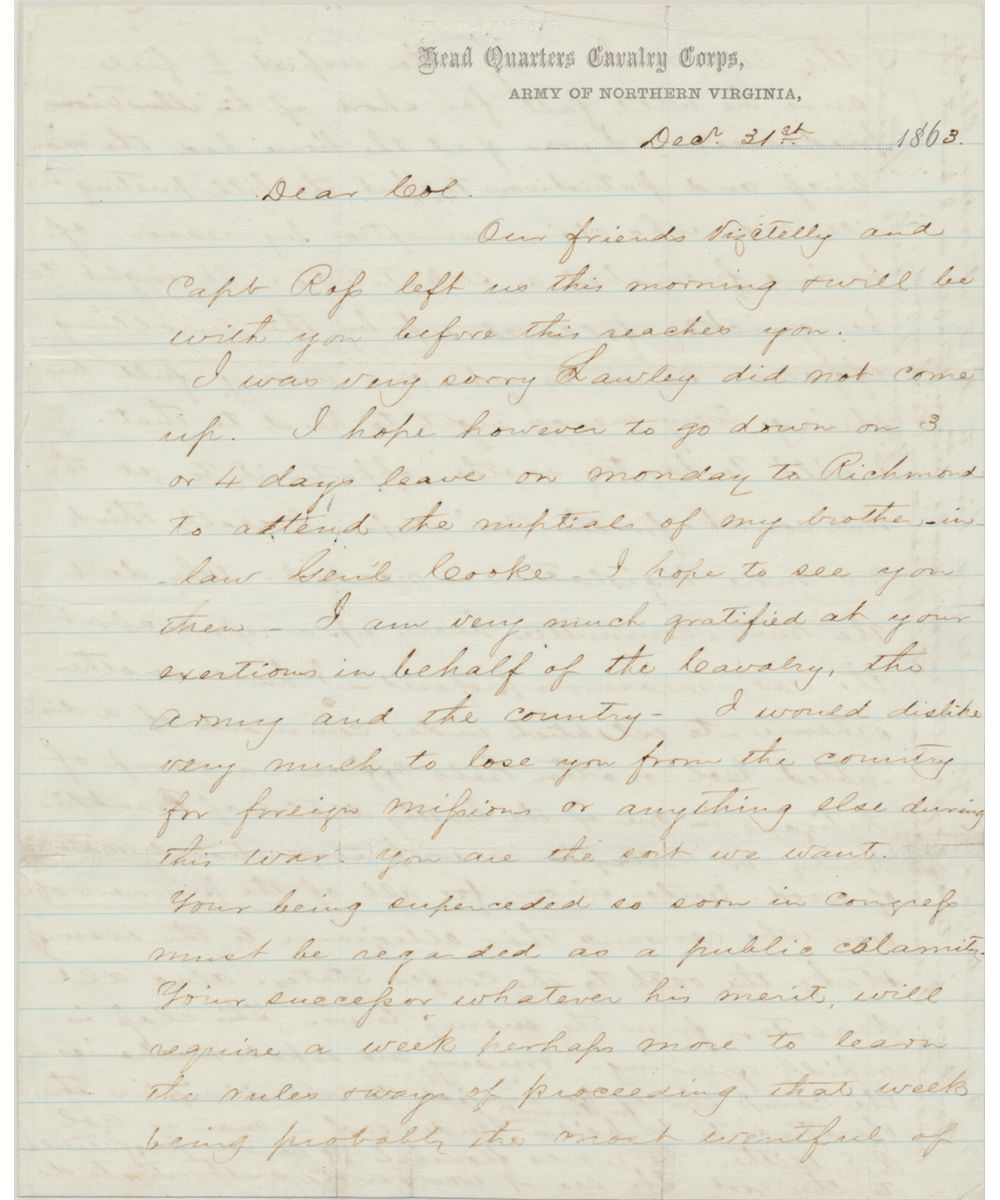 Head Quarters Cavalry Corps,
ARMY OF NORTHERN VIRGINIA,
Decr. 31st. 1863.
Dear Col.
Our friends Vizetelly and
Capt Ross left us this morning & will be
with you before this reaches you.
I was very sorry Lawley did not come
up. I hope however to go down on 3
or 4 days leave on monday to Richmond
to attend the nuptials of my brother-in-
-law Gen'l Cooke - I hope to see you
then - I am very much gratified at your
exertions in behalf of the Cavalry, the
army and the country - I would dislike
very much to lose you from the country
for foreign missions or anything else during
this war. you are the sort we want.
Your being superceded so soon in Congress
must be regarded as a public calamity.
Your successor whatever his merit, will
require a week perhaps more to learn
the rules & ways of proceeding, that week
being probably the most eventful of